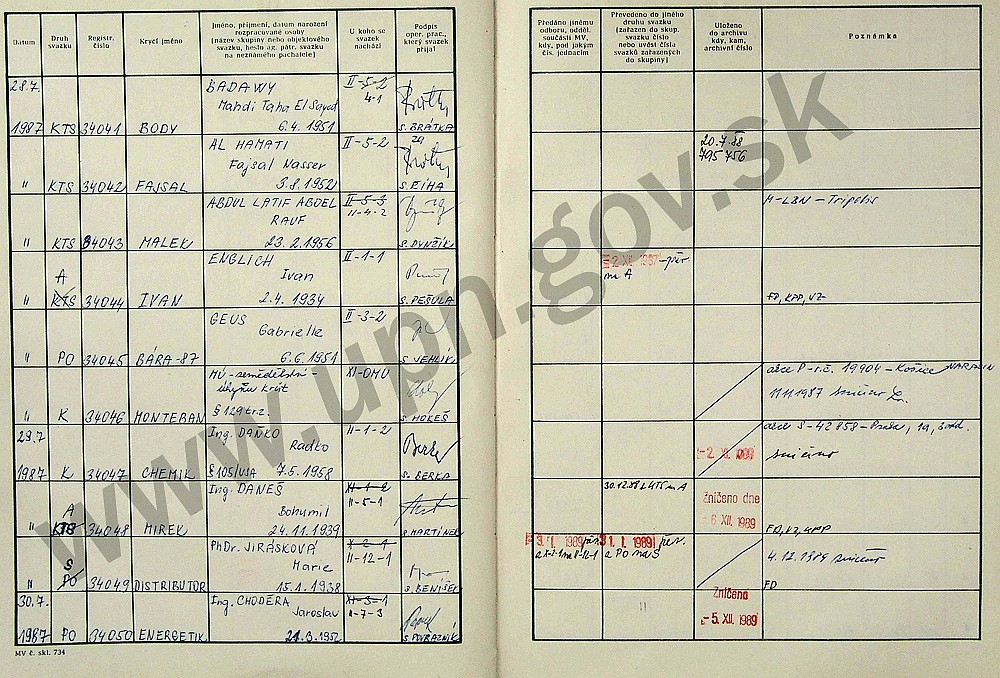 Datum
Druh svazku
Registr. číslo
Krycí jméno
Jméno, příjmení, datum narození rozpracované osoby (název skupiny nebo objektového svazku, heslo ag. pátr. svazku na neznámého pachatele)
U koho se svazek nachází
Podpis oper. prac., který svazek přijal
Předáno jinému odboru, odděl. součásti MV, kdy, pod jakým čís. jednacím
Převedeno do jiného druhu svazku (zařazen do skup. svazku číslo nebo uvést čísla svazků zařazených do skupiny)
Uloženo do archivu kdy, kam, archivní číslo
Poznámka
28.7. BADAWY II-5-2
Mahdi Taha El Sayed 4-1
1987 KTS 34041 BODY 6.4.1951 S. BRÁTKA
AL HAMATI II-5-2 20.7.88
Fajsal Nasser 795756
" KTS 34042 FAJSAL 3.8.1952 S. ŘÍHA
ABDUL LATIF ABDEL II-5-3 M-LBN-Tripolis
RAUF II-4-2
" KTS 34043 MALEK 23.2.1956 S. DYNŽÍK
ENGLICH II-1-1 -2. XII. 1987
A Ivan na A
" KTS 34044 IVAN 2.4.1934 S. PEŠULA FD, KPP, VZ
GEUS II-3-2
Gabrielle
" PO 34045 BÁRA-87 6.6.1951 S. JEHLÍK
MÚ-zemědělství- XI-OMU akce P-r.č. 19904-Košice MARADIN
úhynu krůt 11.11.1987 zničeno
" K 34046 MONTEBAN § 129 tr.z. S. MOKEŠ
29.7. Ing. DAŇKO II-1-2 akce S-42858-Praha,
Radko -2. XI. 1989 zničeno
1987 K 34047 CHEMIK § 105/USA 7.5.1958 S. BERKA
Ing. DANEŠ XI-1-2 30.12.88 z KTS na A Zničeno dne
A Bohumil II-5-1 -6 XII. 1989
" KTS 34048 MIREK 24.11.1939 S. MARTÍNEK
PhDr. JIRÁSKOVÁ X-2-1 -3. I. 1989 31. I. 1989
S Marie II-12-1 z PO na S 4.12.1989 zničeno
" PO 34049 DISTRIBUTOR 15.1.1938 S. BENÍŠEK FD
30.7. Ing. CHODĚRA XI-3-1 Zničeno
Jaroslav II-7-3 -5. XII. 1989
1987 PO 34050 ENERGETIK 21.3.1952 S. POVRAZNÍK
MV č. skl. 734
www.upn.gov.sk